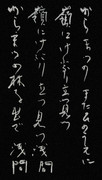 からまつの林を出でて 浅間
嶺にけぶり立つ見つ 浅間
嶺にけぶり立つ見つ
からまつの またそのうへに